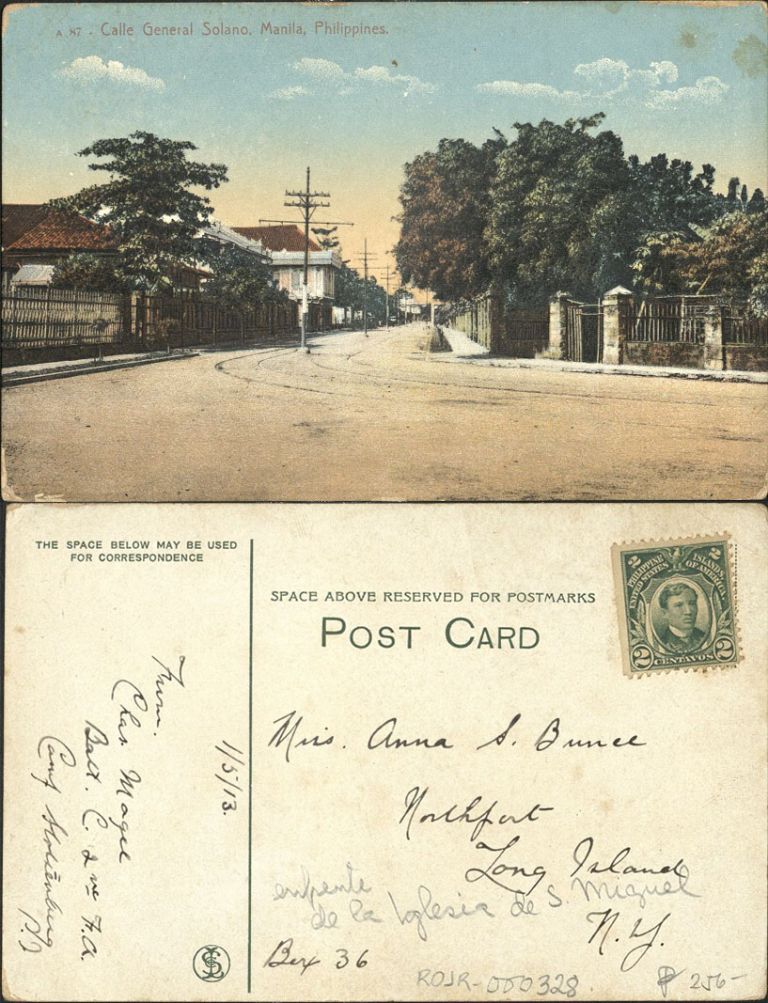 A 87 - Calle General Solano, Manila, Philippines.
THE SPACE BELOW MAY BE USED
FOR CORRESPONDENCE
SPACE ABOVE RESERVED FOR POSTMARKS
POST CARD
2 2
PHILIPPINE ISLANDS
UNITED STATES OF AMERICA
2 CENTAVOS 2
1/5/13.
From.
Chas Magee
Batt. C. 2nd F.A.
Camp Stotsenburg
P.I.
Miss. Anna S. Bunce
Northport
Long Island
N.Y.
Box 36
enfrente
de la Iglesia de S. Miguel
ROJR-000328
P 256-